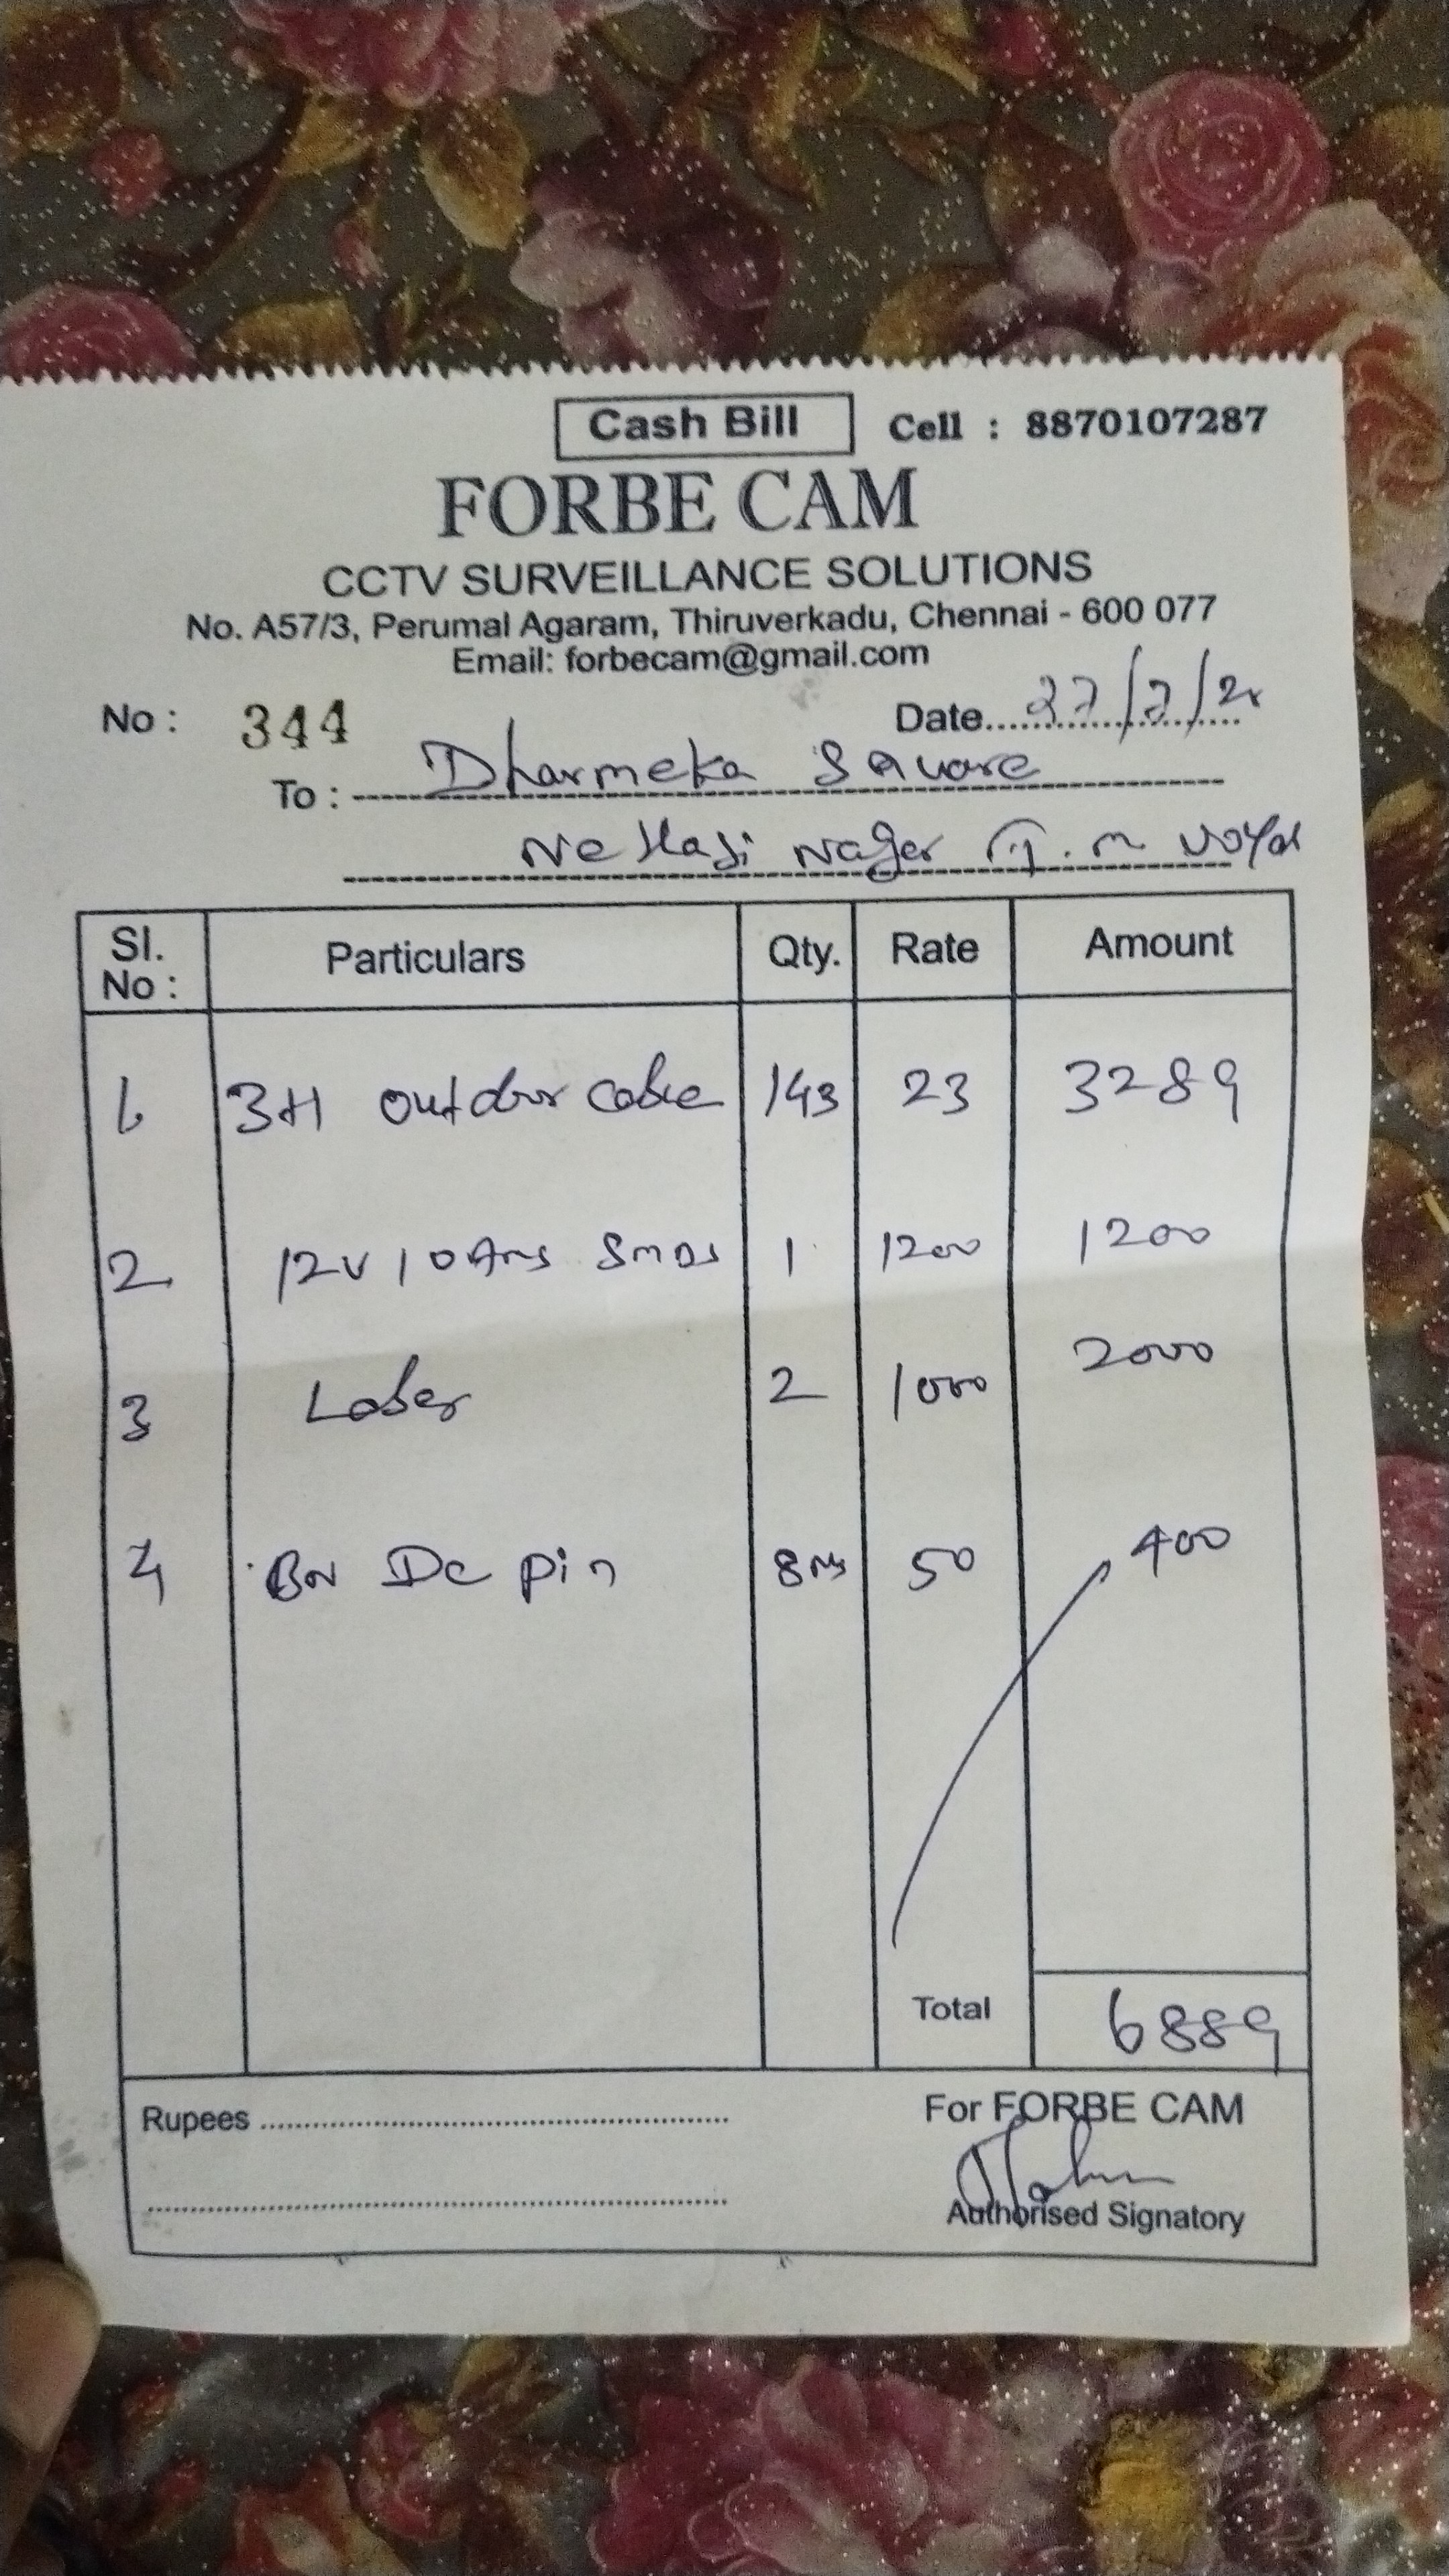 Cash Bill Cell : 8870107287
FORBE CAM
CCTV SURVEILLANCE SOLUTIONS
No. A57/3, Perumal Agaram, Thiruverkadu, Chennai - 600 077
Email: forbecam@gmail.com
No : 344 Date
To : Dharmeka Square
Nagar
Sl. No : Particulars Qty. Rate Amount
1 3+1 Outdoor Cable 143 23 3289
2 12V 10 1 1200 1200
3 Laber 2 1000 2000
4 DC Pin 8 50 400
Total 6889
Rupees For FORBE CAM
Authorised Signatory